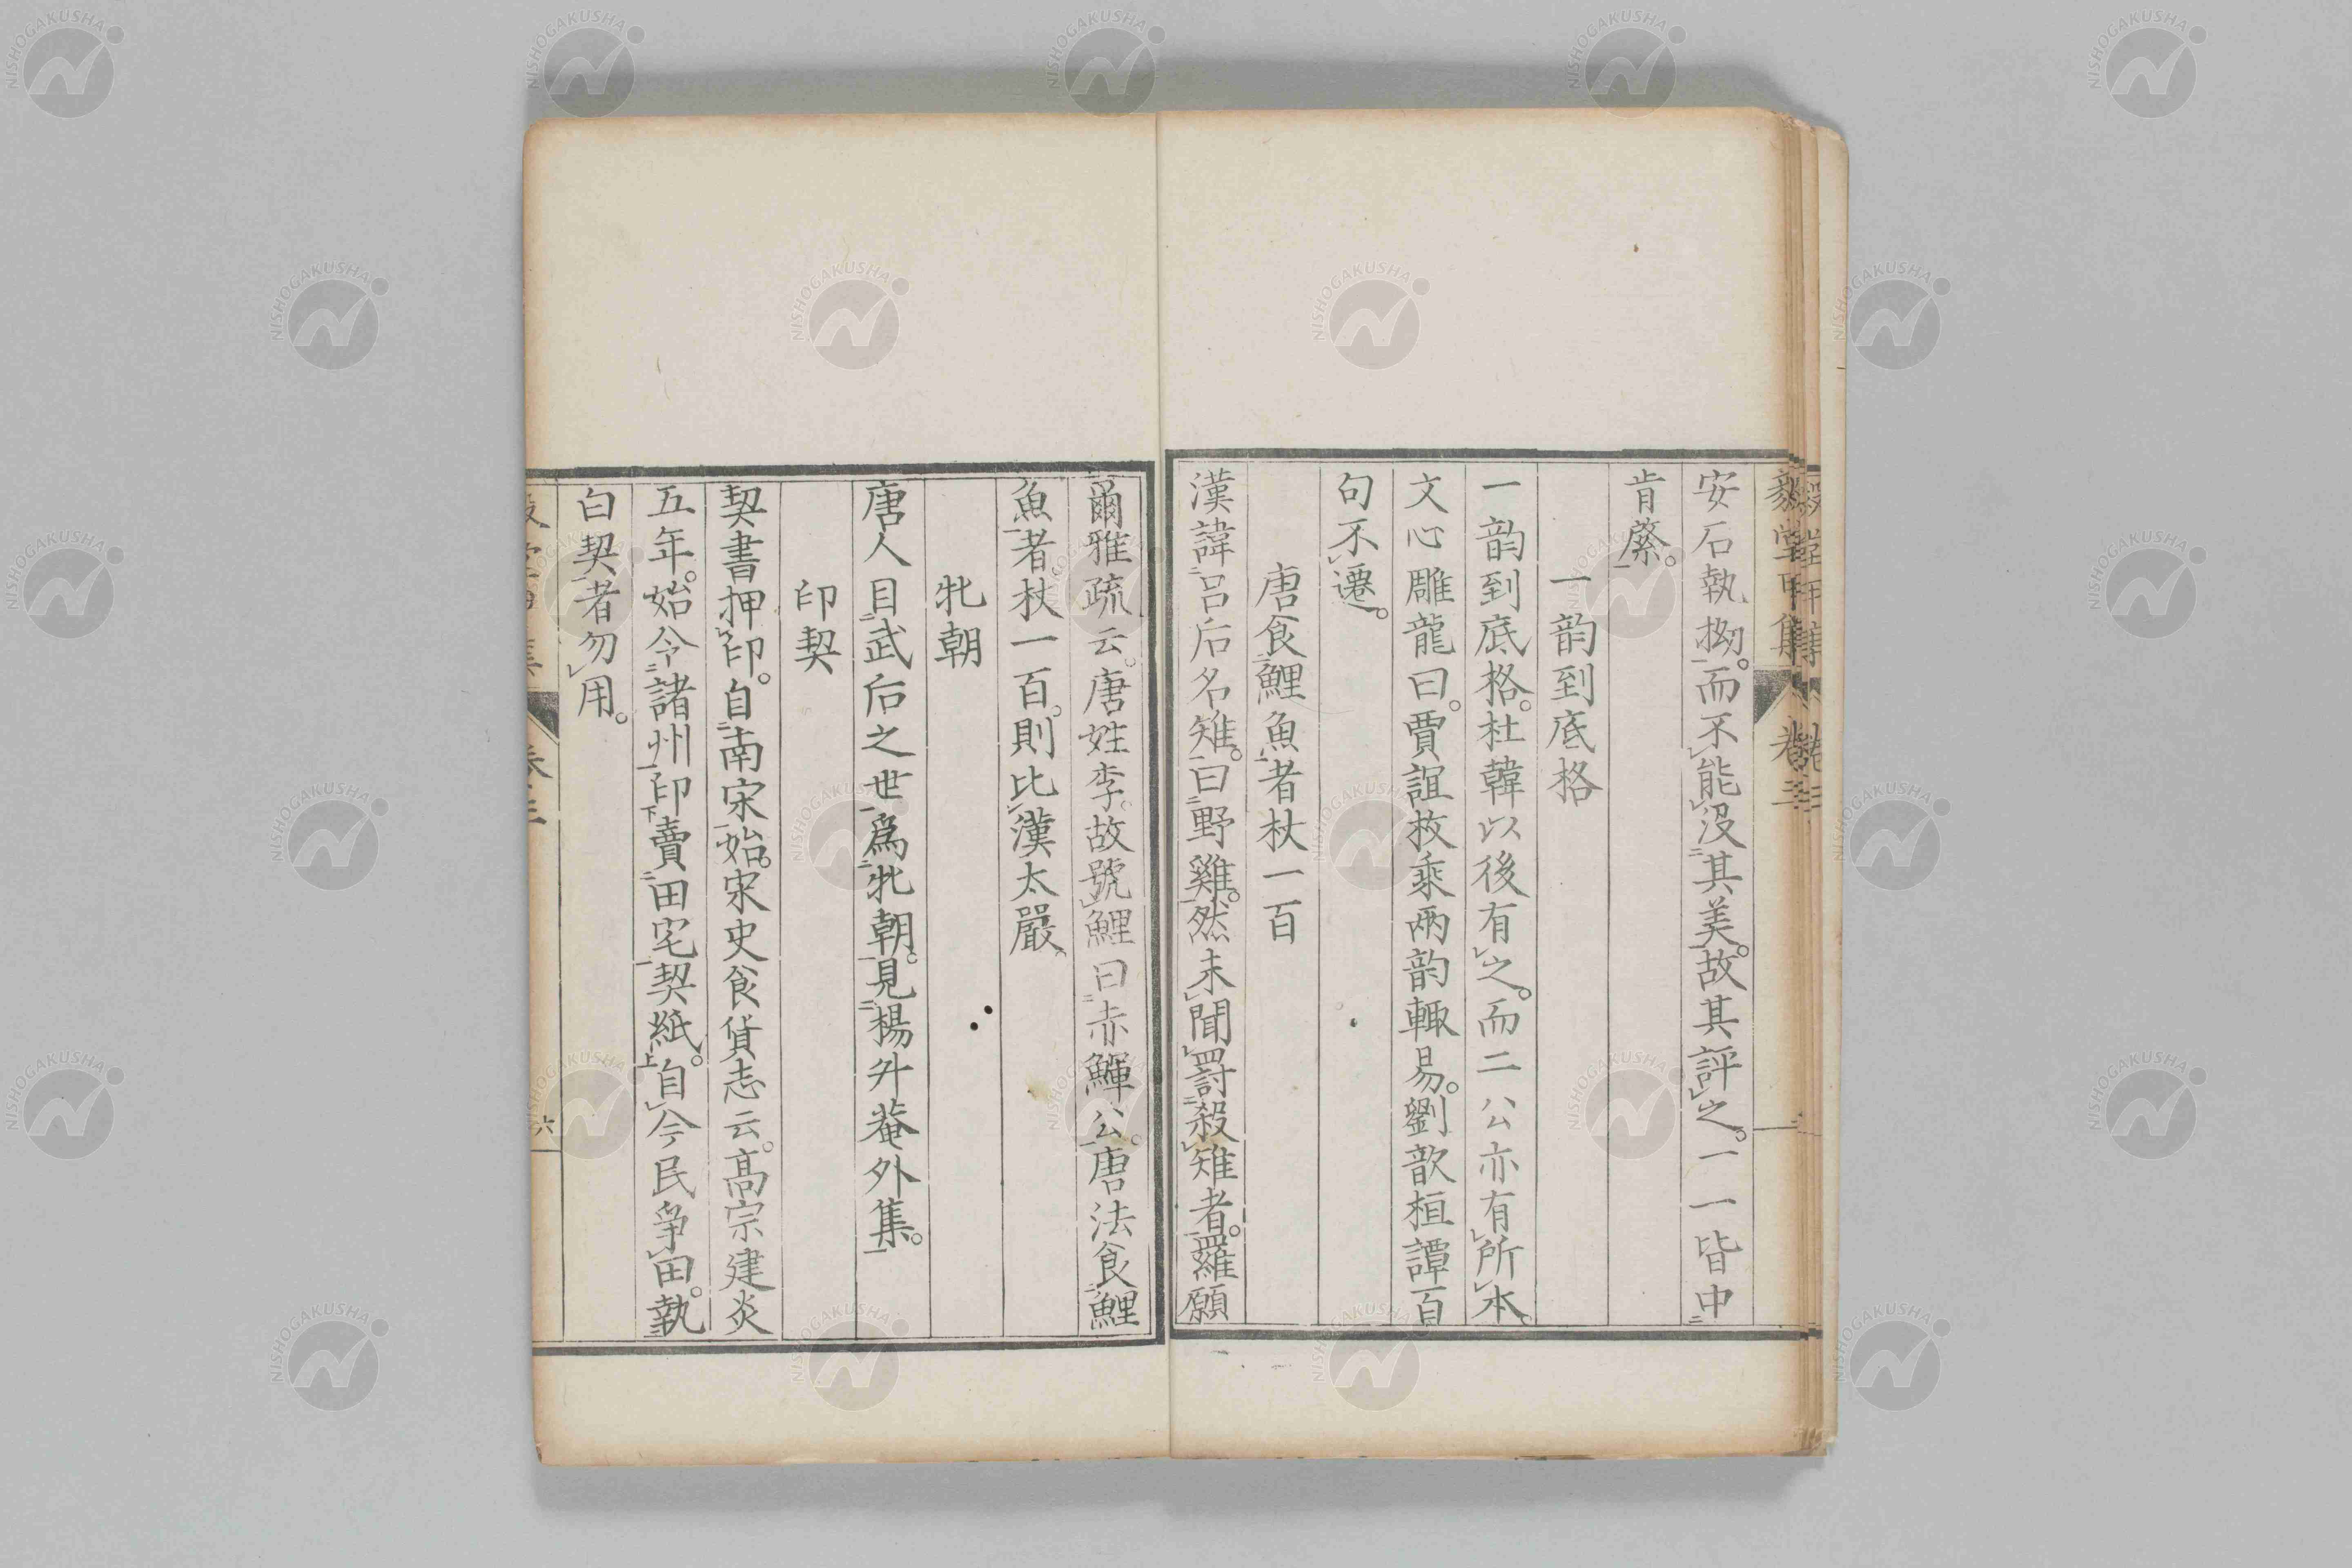 安石執拗。而不能沒其美。故其評之。一一皆中
肯綮。
一韵到底格
一韵到底格。杜韓以後有之。而二公亦有所本。
文心雕龍曰。賈誼枚乘兩韵輙易。劉歆桓譚百
句不遷。
唐食鯉魚者杖一百
漢諱呂后名雉。曰野雞。然未聞罸殺雉者。羅願
爾雅疏云。唐姓李。故號鯉曰赤鯶公。唐法食鯉
魚者杖一百。則比漢太嚴、
牝朝
唐人目武后之世爲牝朝。見楊升菴外集。
印契
契書押印。自南宋始。宋史食貨志云。高宗建炎
五年。始令諸州印賣田宅契紙。自今民爭田。執
白契者勿用。
卷三
六
NISHOGAKUSHA